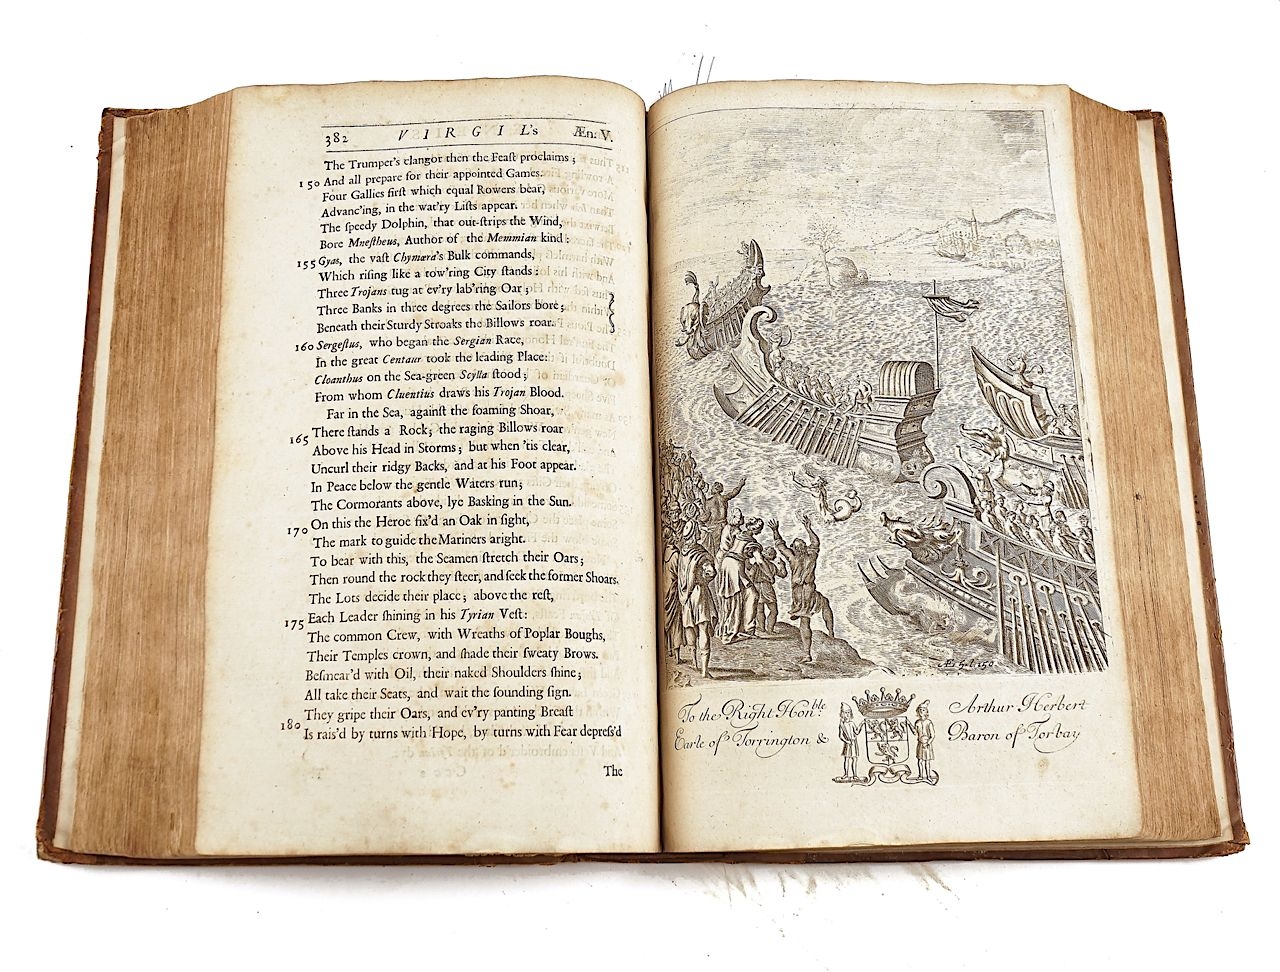 382 VIRGIL's Æn: V.
The Trumpet's clangor then the Feaſt proclaims;
150 And all prepare for their appointed Games.
Four Gallies firſt which equal Rowers bear,
Advanc'ing, in the wat'ry Liſts appear.
The ſpeedy Dolphin, that out-ſtrips the Wind,
Bore Mneſtheus, Author of the Memmian kind:
155 Gyas, the vaſt Chymæra's Bulk commands,
Which riſing like a tow'ring City ſtands:
Three Trojans tug at ev'ry lab'ring Oar;
Three Banks in three degrees the Sailors bore;
Beneath their Sturdy Stroaks the Billows roar.
160 Sergeſtus, who began the Sergian Race,
In the great Centaur took the leading Place:
Cloanthus on the Sea-green Scylla ſtood;
From whom Cluentius draws his Trojan Blood.
Far in the Sea, againſt the foaming Shoar,
165 There ſtands a Rock; the raging Billows roar
Above his Head in Storms; but when 'tis clear,
Uncurl their ridgy Backs, and at his Foot appear.
In Peace below the gentle Waters run;
The Cormorants above, lye Basking in the Sun.
170 On this the Heroe fix'd an Oak in ſight,
The mark to guide the Mariners aright.
To bear with this, the Seamen ſtretch their Oars;
Then round the rock they ſteer, and ſeek the former Shoars.
The Lots decide their place; above the reſt,
175 Each Leader ſhining in his Tyrian Veſt:
The common Crew, with Wreaths of Poplar Boughs,
Their Temples crown, and ſhade their ſweaty Brows.
Beſmear'd with Oil, their naked Shoulders ſhine;
All take their Seats, and wait the ſounding ſign.
They gripe their Oars, and ev'ry panting Breaſt
180 Is rais'd by turns with Hope, by turns with Fear depreſs'd
The
Æ: 5. l. 150
To the Right Honble. Arthur Herbert
Earle of Torrington & Baron of Torbay